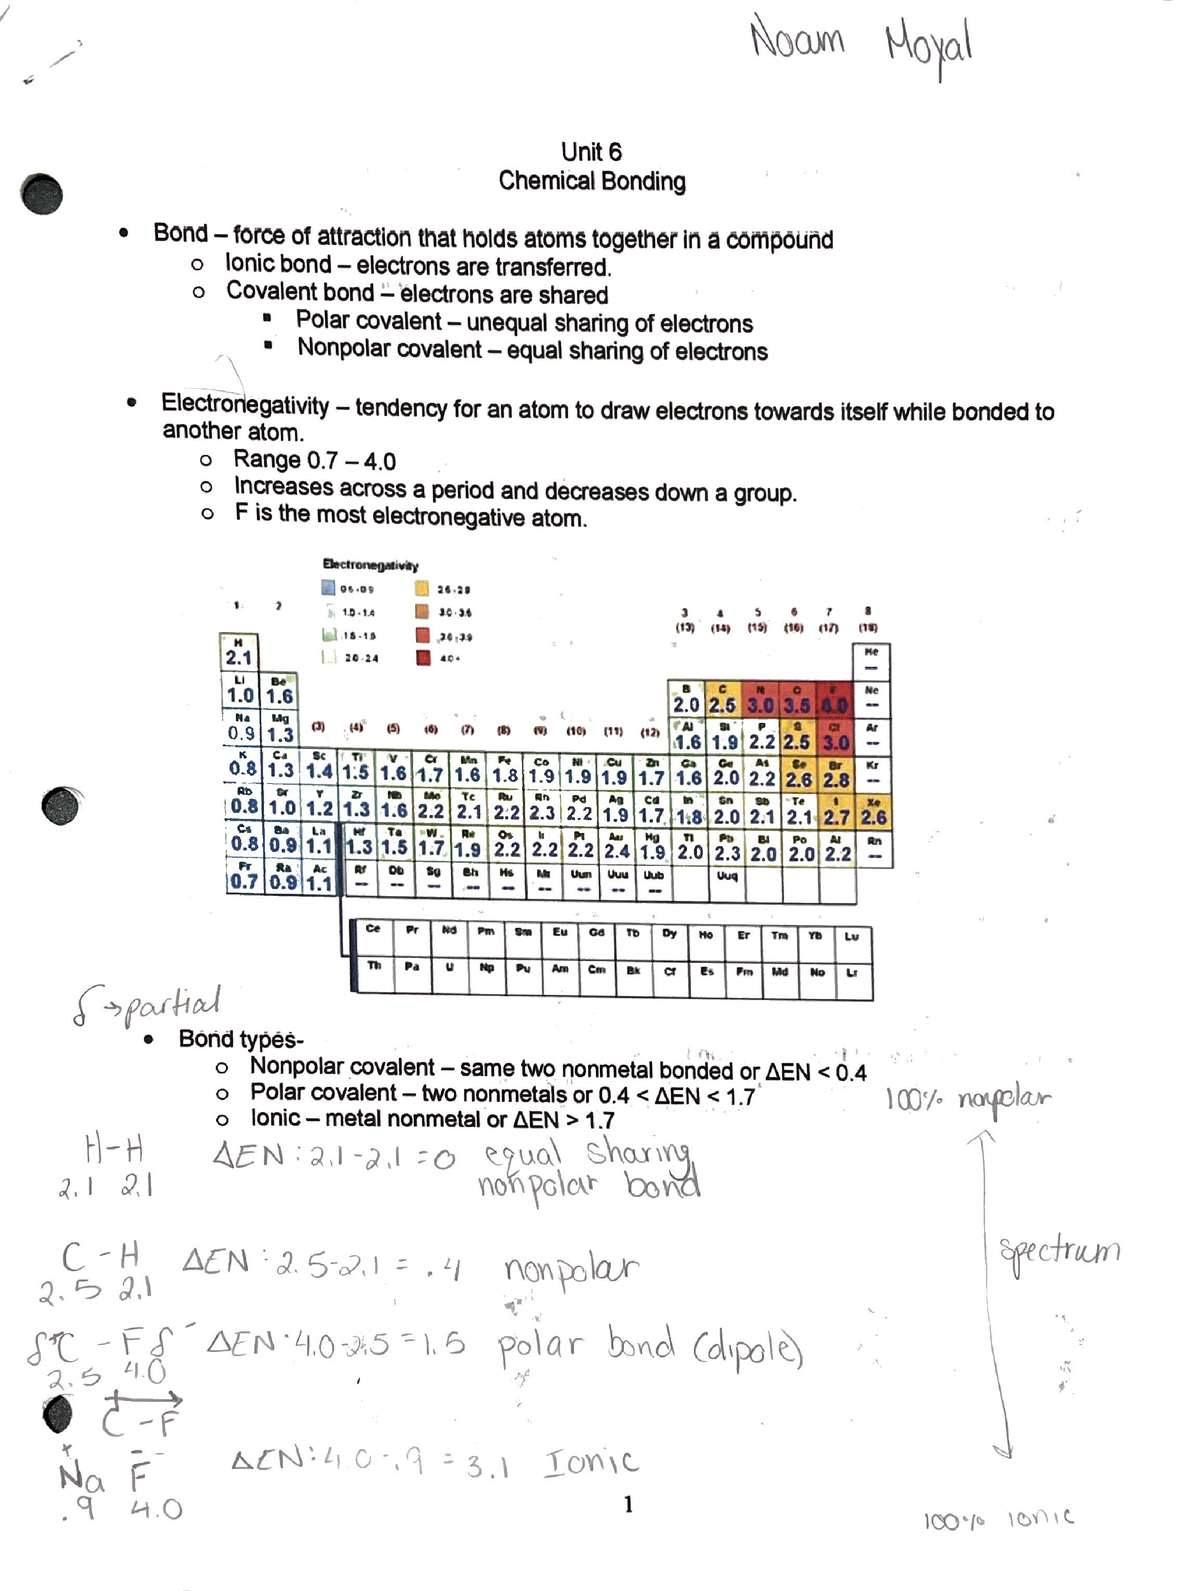 Noam Moyal
Unit 6
Chemical Bonding
• Bond – force of attraction that holds atoms together in a compound
o Ionic bond – electrons are transferred.
o Covalent bond – electrons are shared
▪ Polar covalent – unequal sharing of electrons
▪ Nonpolar covalent – equal sharing of electrons
• Electronegativity – tendency for an atom to draw electrons towards itself while bonded to
another atom.
o Range 0.7 – 4.0
o Increases across a period and decreases down a group.
o F is the most electronegative atom.
Electronegativity
1.0-1.4 3.0-3.6
2.0-2.4 4.0+
1 2 3 4 5 6 7 8
(13) (14) (15) (16) (17) (18)
H He
2.1 --
Li Be B C N O F Ne
1.0 1.6 2.0 2.5 3.0 3.5 4.0 --
Na Mg (3) (4) (5) (6) (7) (8) (9) (10) (11) (12) Al Si P S Cl Ar
0.9 1.3 1.6 1.9 2.2 2.5 3.0 --
K Ca Sc Ti V Cr Mn Fe Co Ni Cu Zn Ga Ge As Se Br Kr
0.8 1.3 1.4 1.5 1.6 1.7 1.6 1.8 1.9 1.9 1.9 1.7 1.6 2.0 2.2 2.6 2.8 --
Rb Sr Y Zr Nb Mo Tc Ru Rh Pd Ag Cd In Sn Sb Te I Xe
0.8 1.0 1.2 1.3 1.6 2.2 2.1 2.2 2.3 2.2 1.9 1.7 1.8 2.0 2.1 2.1 2.7 2.6
Cs Ba La Hf Ta W Re Os Ir Pt Au Hg Tl Pb Bi Po At Rn
0.8 0.9 1.1 1.3 1.5 1.7 1.9 2.2 2.2 2.2 2.4 1.9 2.0 2.3 2.0 2.0 2.2 --
Fr Ra Ac Rf Db Sg Bh Hs Mt Uun Uuu Uub Uuq
0.7 0.9 1.1 -- -- -- -- -- -- -- -- --
Ce Pr Nd Pm Sm Eu Gd Tb Dy Ho Er Tm Yb Lu
Th Pa U Np Pu Am Cm Bk Cf Es Fm Md No Lr
δ → partial
• Bond types-
o Nonpolar covalent – same two nonmetal bonded or ΔEN < 0.4
o Polar covalent – two nonmetals or 0.4 < ΔEN < 1.7
100% nonpolar
o Ionic – metal nonmetal or ΔEN > 1.7
H-H ΔEN: 2.1-2.1 = 0 equal sharing
2.1 2.1 nonpolar bond
C-H ΔEN: 2.5-2.1 = .4 nonpolar
spectrum
2.5 2.1
δ+C - F δ- ΔEN: 4.0-2.5 = 1.5 polar bond (dipole)
2.5 4.0
C-F
+ -
Na F ΔEN: 4.0-.9 = 3.1 Ionic
.9 4.0
1
100% ionic